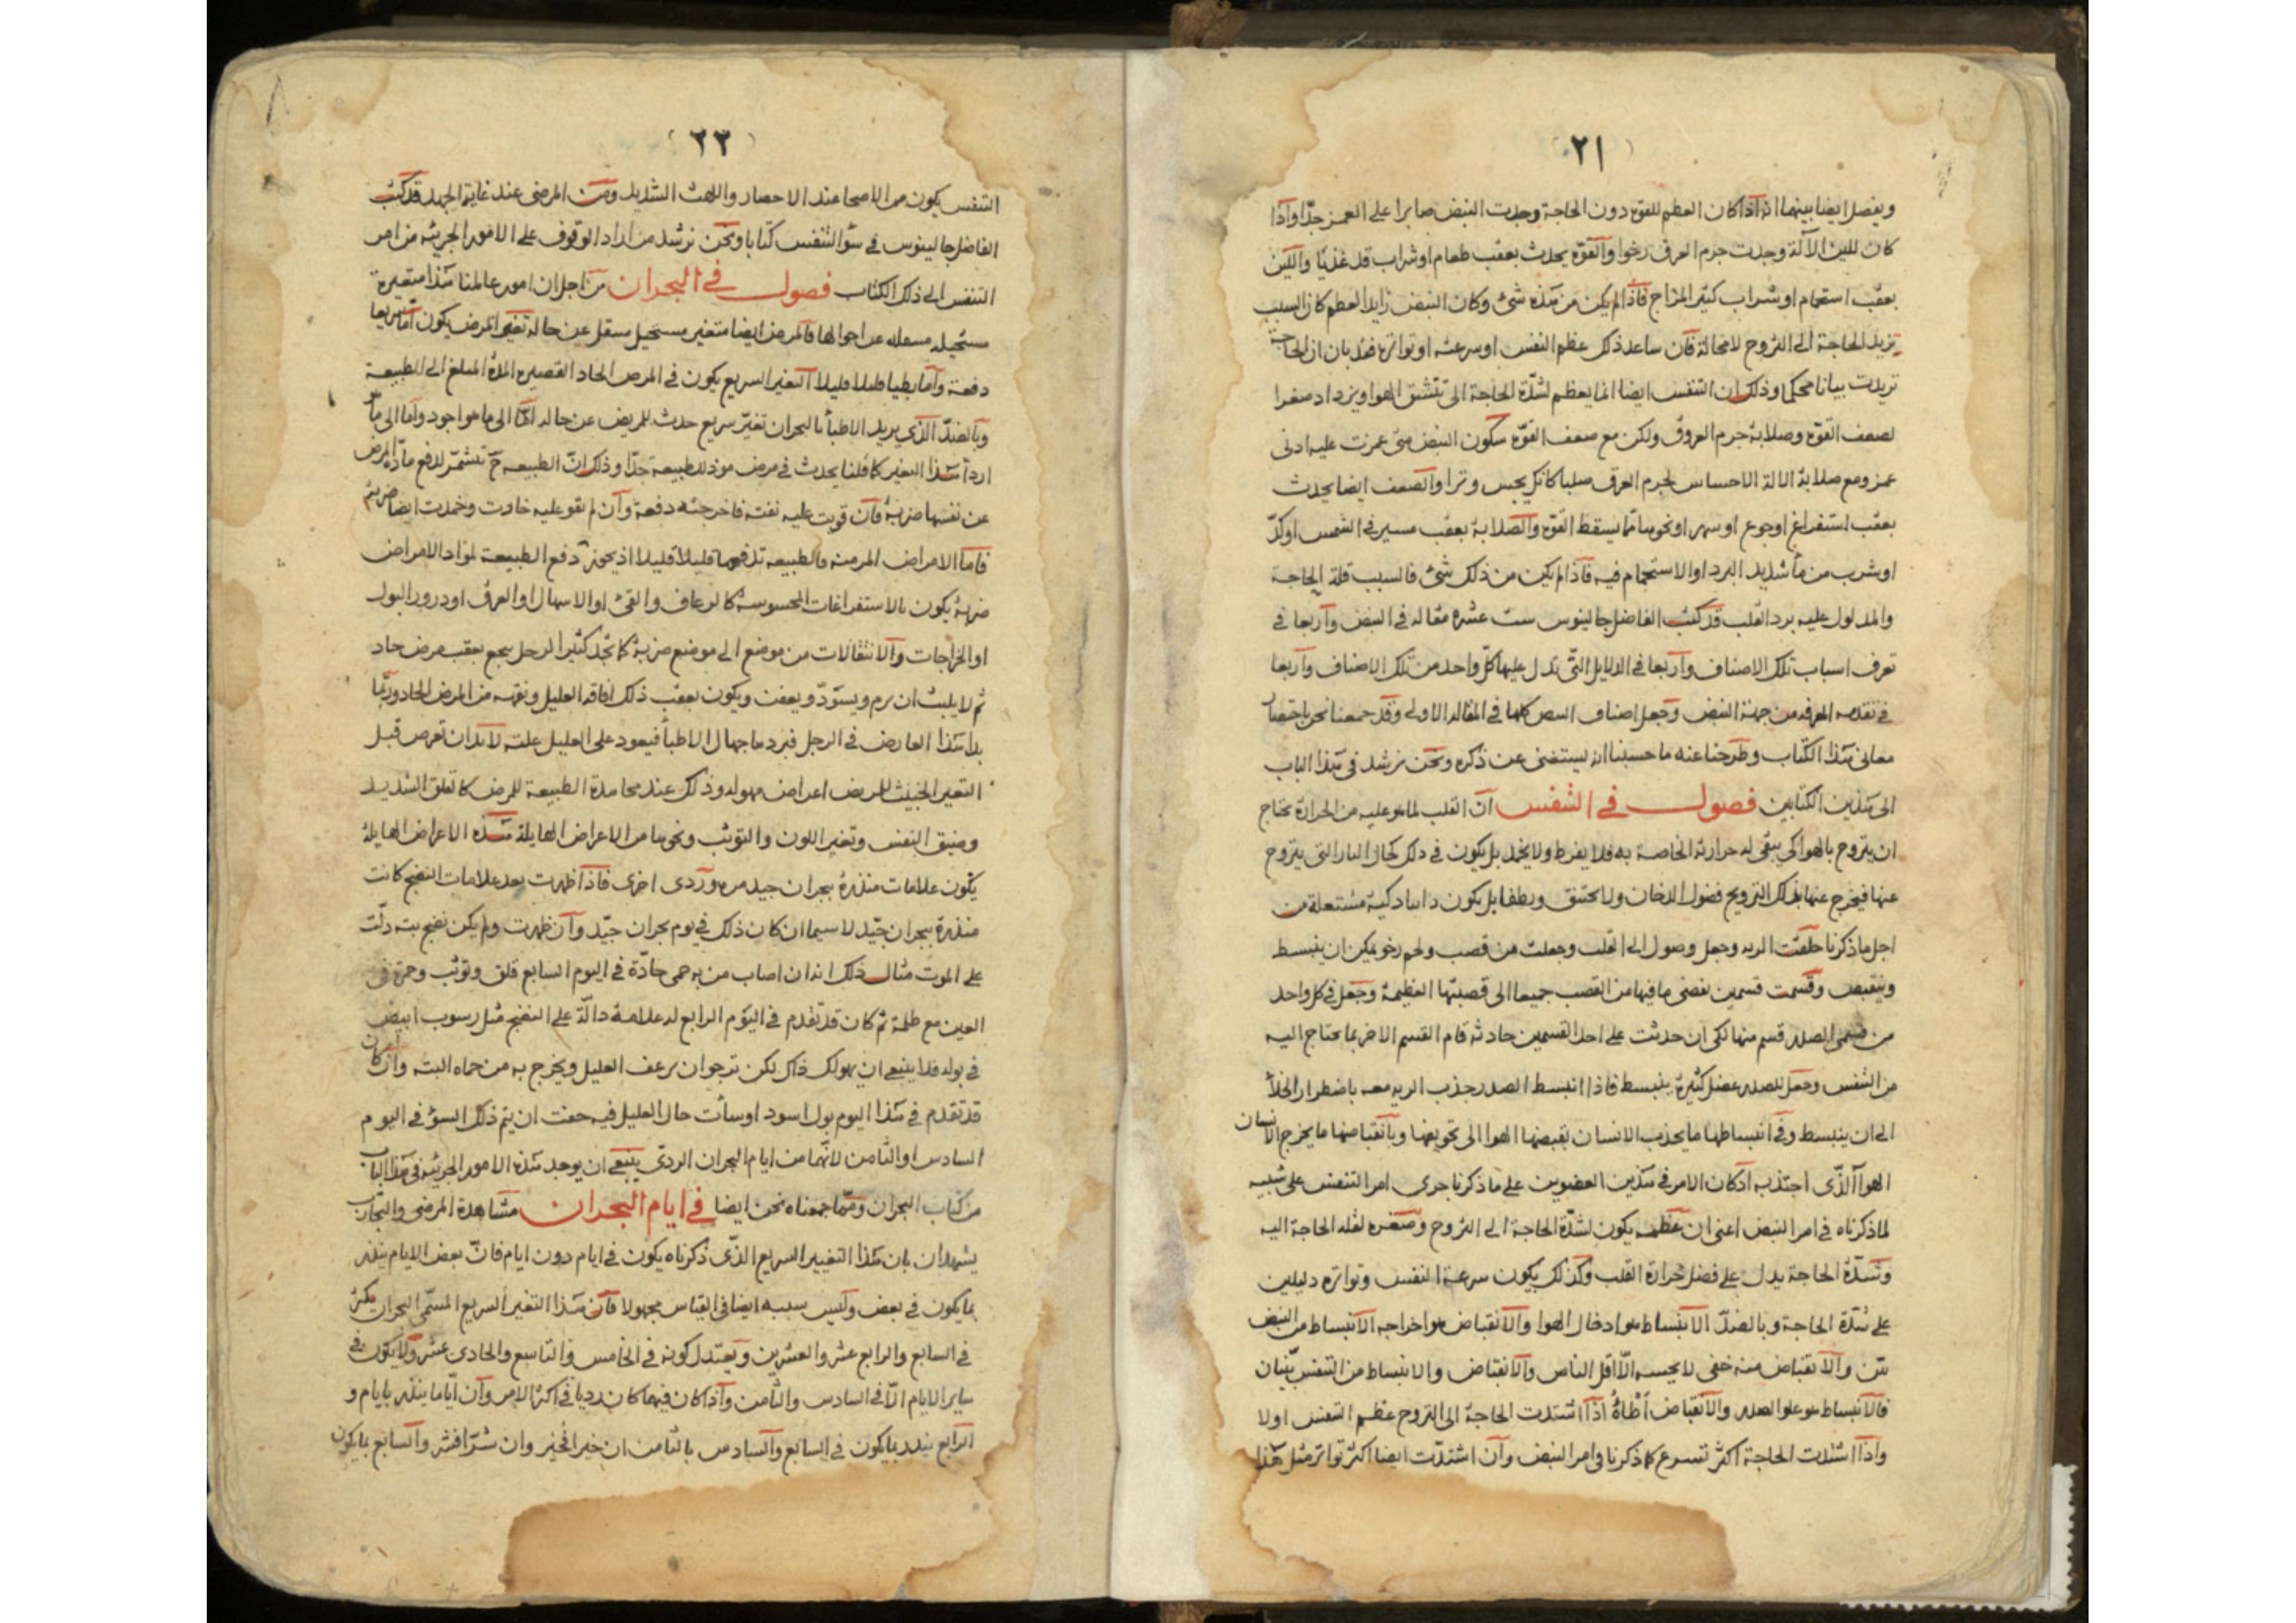 (٢١)
ويفصل ايضا بينهما انه اذا كان العظم للقوة دون الحاجة وجدت النبض صابرا على الغمز جدّا واذا
كان للين الآلة وجدت جرم العرق رخوا والقوة يحدث بعقب طعام او شراب قد غذيا واللين
بعقب استحمام او شراب كثير المزاج فاذا لم يكن من هذه شئ وكان النبض زايد العظم كان السبب
تزيد الحاجة الى التروح لا محالة فان ساعد ذلك عظم النفس او سرعته او تواتره فقد بان ان الحاجة
تزيدت بيانا محكما وذلك ان التنفس ايضا انما يعظم لشدّة الحاجة الى تنشق الهوا ويزداد صغرا
لضعف القوة وصلابة جرم العروق ولكن مع ضعف القوّة سكون النبض متى غمزت عليه ادنى
غمز ومع صلابة الالة الاحساس لجرم العرق صلبا كانك يجس وترا والضعف ايضا يحدث
بعقب استفراغ او جوع او سهر او نحوها مما يسقط القوة والصلابة بعقب مسير في الشمس او كدّ
او شرب من ماء شديد البرد او الاستحمام فيه فاذا لم يكن من ذلك شئ فالسبب قلة الحاجة
والمدلول عليه برد القلب قد كتب الفاضل جالينوس ست عشرة مقاله في النبض واربعا في
تعرف اسباب تلك الاصناف واربعا في الدلايل التي تدل عليها كلّ واحد من تلك الاصناف واربعا
في تقدمه المعرفه من جهة النبض وجعل اصناف النبض كلها في المقالة الاولى وقد جمعنا نحن باختصار
معاني هذا الكتاب وطرحنا عنه ما حسبنا انه يستغنى عن ذكره ونحن نرشد في هذا الباب
الى هذين الكتابين فصول في التنفس ان القلب لما هو عليه من الحرارة يحتاج
ان يتروح بالهوا كي يبقى له حرارته الخاصة به فلا يفرط ولا يخمد بل يكون في ذلك كحال النار التي يتروح
عنها فيخرج عنها بذلك الترويح فضول الدخان ولا يختنق ويطفا بل يكون دايما ذكية مشتعلة من
اجل ما ذكرنا خلقت الريه وجعل وصول الى القلب وجعلت من قصب ولحم رخو يمكن ان ينبسط
وينقبض وقسمت قسمين يفضى ما فيها من القصب جميعا الى قصبتها العظيمة وجعل في كل واحد
من قسمى الصدر قسم منها لكى ان حدثت على احد القسمين حادثه قام القسم الاخر بما يحتاج اليه
من التنفس وجعل للصدر عضل كثيرة ينبسط فاذا انبسط الصدر جذب الريه معه باضطرار الخلأ
الى ان ينبسط وفي انبساطها ما يجذب الانسان بقبضها الهوا الى تجويفها وبانقباضها ما يخرج الانسان
الهوا الذى اجتذبه اذ كان الامر في هذين العضوين على ما ذكرنا جرى امر التنفس على شبيه
لما ذكرناه في امر النبض اعنى ان عظمه يكون لشدّة الحاجة الى التروح وصغره لقله الحاجة اليه
وشدّة الحاجة يدل على فضل حرارة القلب وكذلك يكون سرعة التنفس وتواتره دليلين
على شدّة الحاجة وبالضدّ الانبساط هو ادخال الهوا والانقباض هو اخراجه الانبساط من النبض
بيّن والانقباض منه خفى لا يحسه الّا اقل الناس والانقباض والانبساط من التنفس بيّنان
فالانبساط هو علو الصدر والانقباض اطاؤه اذا اشتدت الحاجة الى التروح عظم التنفس اولا
واذا اشتدت الحاجة اكثر تسرع كما ذكرنا في امر النبض وان اشتدّت ايضا اكثر تواتر مثل هذا
(٢٢)
التنفس يكون من الاصحا عند الاحصار واللهث الشديد ومن المرضى عند غاية الجهد قد كتب
الفاضل جالينوس في سؤ التنفس كتابا ونحن نرشد من اراد الوقوف على الامور الجزئيه من امر
التنفس الى ذلك الكتاب فصول في البحران من اجل ان امور عالمنا هذا متغيرة
مستحيلة منتقلة عن احوالها فالمرض ايضا متغير مستحيل منتقل عن حاله تغير المرض يكون اما سريعا
دفعة واما بطيا قليلا قليلا التغير السريع يكون في المرض الحاد القصير المدة المبلغ الى الطبيعة
وبالضدّ الذي يريد الاطبأ بالبحران تغيّر سريع حدث للمريض عن حاله امّا الى ما هو اجود واما الى ما هو
اردأ هذا التغير كما قلنا يحدث في مرض موذ للطبيعة جدّا وذلك انّ الطبيعه ح تتشمّر لدفع مادّة المرض
عن نفسها ضربة فان قويت عليه نفته فاخرجته دفعة وان لم تقو عليه خارت وخمدت ايضا ضربة
فاما الامراض المزمنه فالطبيعه تدفعها قليلا قليلا اذ يحوز دفع الطبيعة لمواد الامراض
ضربة يكون بالاستفراغات المحسوسة كالرعاف والقئ او الاسهال او العرق او درور البول
او الخراجات والانتقالات من موضع الى موضع ضربة كما نجد كثيرا الرجل يوجع بعقب مرض حاد
ثم لا يلبث ان يرم ويسودّ ويعفن ويكون بعقب ذلك افاقة العليل ونقهه من المرض الحاد وربّما
بدا هذا العارض في الرجل فبردها جهال الاطبأ فيعود على العليل علته لا بد ان تعرض قبل
التغير الخبيث للمريض اعراض مهوله وذلك عند مجاهدة الطبيعة للمرض كالقلق الشديد
وضيق النفس وتغير اللون والتوثب ونحوها من الاعراض الهايلة هذه الاعراض الهايلة
يكون علامات منذرة ببحران جيد مره وردى اخرى فاذا ظهرت بعد علامات النضج كانت
منذرة ببحران جيّد لا سيما ان كان ذلك في يوم بحران جيّد وان ظهرت ولم يكن نضج بته دلّت
على الموت مثال ذلك انه ان اصاب من به حمى حادّة في اليوم السابع قلق وتوثب وحمرة في
العين مع ظلمة ثم كان قد تقدم في اليوم الرابع له علامة دالّة على النضج مثل رسوب ابيض
في بوله فلا ينبغى ان يهولك ذاك لكن ترجو ان يرعف العليل ويخرج به من حماه البته وان كان
قد تقدم في هذا اليوم بول اسود او سأت حال العليل فيه خفت ان يتم ذلك السؤ في اليوم
السادس او الثامن لانّهما من ايام البحران الردىّ ينبغى ان يوجد هذه الامور الجزئيه في هذا الباب
من كتاب البحران ومما جمعناه نحن ايضا في ايام البحران مشاهدة المرضى والتجارب
يشهدان بان هذا التغيير السريع الذى ذكرناه يكون في ايام دون ايام فانّ بعض الايام ينذر
بما يكون في بعض وليس سببه ايضا في القياس مجهولا فان هذا التغير السريع المسمّى البحران يكثر
في السابع والرابع عشر والعشرين ويعتدل كونه في الخامس والتاسع والحادى عشر ولا يكون في
ساير الايام الّا في السادس والثامن واذا كان فيهما كان رديا في اكثر الامر وان ايّاما ينذر بايام و
الرابع ينذر بما يكون في السابع والسادس بالثامن ان خيرا فخير وان شرّا فشر والسابع بما يكون